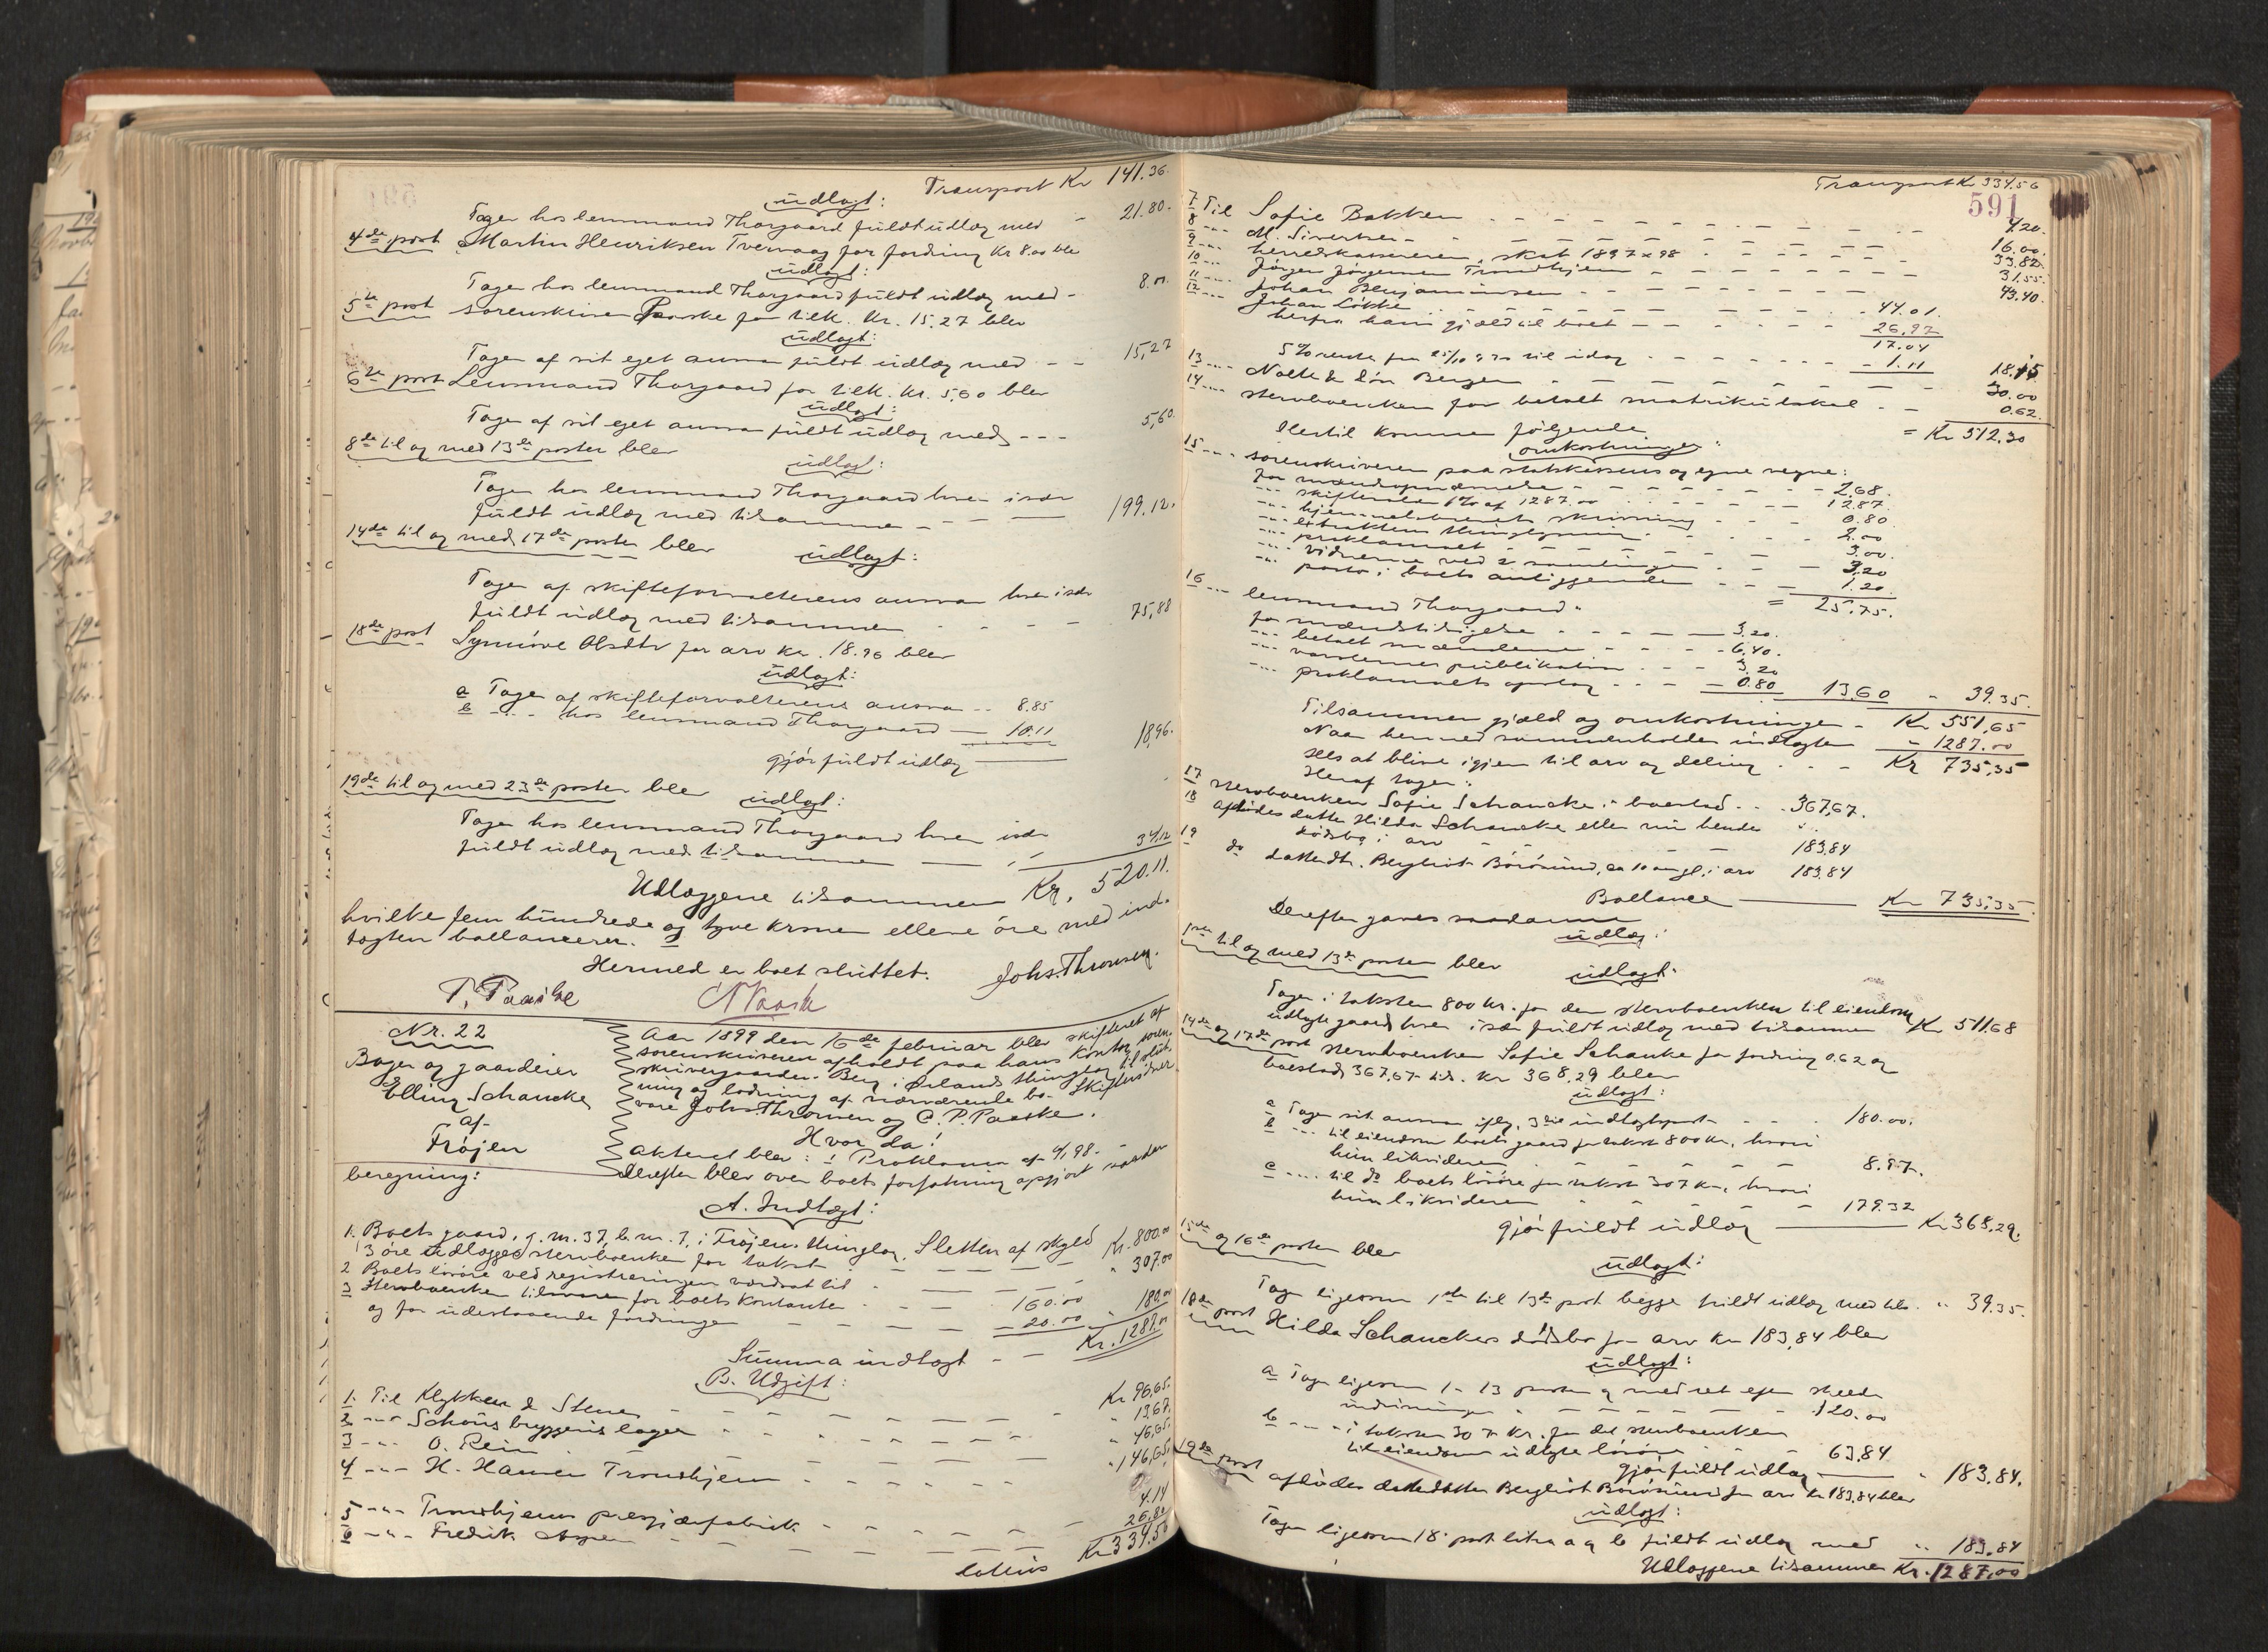 Transport Kr 141.36.
udlagt:
Tager hos lensmand Thorgaard fuldt udlæg med - 21.80.
4de post Martin Henriksen Tvervaag for fordring Kr 8.00 blev
udlagt:
Tager hos lensmand Thorgaard fuldt udlæg med - 8.00.
5te post sorenskriver Paaske for tilk. Kr. 15.27 blev
udlagt:
Tager af sit eget ansvar fuldt udlæg med - - 15,27
6te post Lensmand Thorgaard for tilk. Kr. 5,60 blev
udlagt:
Tager af sit eget ansvar fuldt udlæg med - - - 5,60.
8de til og med 13de poster blev
udlagt:
Tager hos lensmand Thorgaard hver især
fuldt udlæg med tilsammen - - - 199.12.
14de til og med 17de poster blev udlagt:
Tager af skifteforvalterens ansvar hver især
fuldt udlæg med tilsammen - - - 75,88
18de post Synnöve Olsdtr for arv Kr. 18.96 blev
udlagt:
a Tager af skifteforvalterens ansvar - - 8.85
b - - - hos lensmand Thorgaard - 10.11
gjör fuldt udlæg 18,96.
19de til og med 23de poster blev udlagt:
Tager hos lensmand Thorgaard hver især
fuldt udlæg med tilsammen 34,12
Udlæggene tilsammen Kr. 520.11.
hvilke fem hundrede og tyve kroner elleve öre med ind-
tægten ballancerer.
Hermed er boet sluttet. Johs. Thronsen.
P. Paaske
Nr. 22
Bager og gaardeier
Elling Schancke
af
Fröjen
Aar 1899 den 16de februar blev skifteret af
sorenskriveren afholdt paa hans kontor, soren-
skrivergaarden Berg i Ørlands thinglag til slut-
ning og lodning af nærværende bo. Skiftevidner
vare Johs. Thronsen og C. P. Paaske.
Hvor da!
Akteret blev: 1 Proklama af 4/1 98.
Derefter blev over boets forfatning opgjort saadan
beregning:
A. Indtægt:
1. Boets gaard, g. nr. 37, b. nr. 7, i Fröjens thinglag, Sletten af skyld
3 öre udlægges stervboenken for takst - - - Kr. 800.00
2 Boets lösöre ved registreringen vurderet til - - " 307.00
3 Sterboenken tilsvarer for boets kontanter - - 160.00
og for udestaaende fordringer - - 20.00 " 180.00
Summa indtægt - - Kr. 1287.00
B. Udgift:
1. Til Klykken & Stene - - - Kr. 96,65.
2. - " - Schous bryggeris lager - - " 13,67.
3 - " - O. Rein - - " 46,65.
4 - " - H. Hansen Trondhjem - - " 146,65.
5 - " - Trondhjems presgjærfabrik - - 4.14
6 - " - Fredrik Aspen - - 26,80
latus Kr 334.56
Transport Kr 334.56
591
7 Til Sofie Bakken - - - 4.20.
8 - - - M. Sivertsen - - - 16.00.
9 - - - herredskassereren, skat 1897 x 98 - - 33,82.
10 - - - Jörgen Jörgensen Trondhjem - - - 31.55.
11 - - - Johan Benjaminsen - - - 43.40.
12 - - - Johan Lökke - - - 44.01.
herfra hans gjæld til boet - - - 26,97
17.04
5 % rente fra 25/10 97 til idag - - - 1.11 18.15
13 - - - Nolte & Sön Bergen - - - 30.00
14 - - - sterboenken for betalt matrikulskat - - 0.62.
= Kr 512.30
Hertil kommer fölgende
omkostninger:
15 - - - sorenskriveren paa statskassens og egne vegne:
for mændsopnævnelse - - - 2,68.
- - - skifteralen 1 % af 1287.00 - - - 12.87.
- - - hjemmelsbrevets skrivning - - - 0.80.
- - - extraktens thinglysning - - - 2.00
- - - proklamaet - - - 3.00.
- - - vidnerne ved 2 samlinger - - - 3,20
- - - porto i boets anliggender - - - 1.20.
= 25,75.
16 - - - lensmand Thorgaard:
for mændstilsigelse - - - 3.20.
- - - betalt mændene - - - 6.40.
- - - varslernes publikation - - - 3,20
- - - proklamaets opslag - - - 0.80 13,60 " 39.35.
Tilsammen gjæld og omkostninger - Kr 551,65
Naar hermed sammenholdes indtægten " 1287.00
sees at blive igjen til arv og deling - - - Kr 735,35
Heraf tager:
17 sterboenken Sofie Schancke i boeslod - - 367,67.
18 aflödes datter Hilda Schancke eller nu hendes
dödsbo i arv - - - 183,84
19 do datterdtr. Bergliot Börösund, ca 10 aar gl. i arv 183.84
Ballance Kr 735,35.
Derefter gaves saadanne
udlæg:
1ste til og med 13de poster blev udlagt:
Tager i taksten 800 kr. for den sterboenken til eiendom
udlagte gaard hver især fuldt udlæg med tilsammen Kr 511.68
14de og 17de post sterboenken Sofie Schanke for fordring 0.62 og
boeslod 367,67 tils. Kr 368,29 blev
udlagt:
a Tager sit ansvar iflg. 3die indtægtspost - - - 180.00.
b - - - til eiendom boets gaard for takst 800 Kr., hvori
hun likviderer - - - 8.97.
c - - - til do boets lösöre for takst 307 Kr., hvori
hun likviderer - - - 179.32
gjör fuldt udlæg Kr 368,29.
15de og 16de poster blev
udlagt:
Tager ligesom 1ste til 13de post begge fuldt udlæg med tils. " 39.35.
18de post Hilda Schanckes dödsbo for arv Kr 183,84 blev
udlagt:
a Tager ligesom 1 - 13 poster
120.00
b - - - i taksten 307 Kr. for det sterboenken
til eiendom udlagte lösöre - - - 63.84
gjör fuldt udlæg " 183.84.
19de post aflödes datterdatter Bergliot Börösund for arv Kr 183,84 blev
udlagt:
Tager ligesom 18. post litra a og b fuldt udlæg med " 183.84
Udlæggene tilsammen Kr. 1287,00